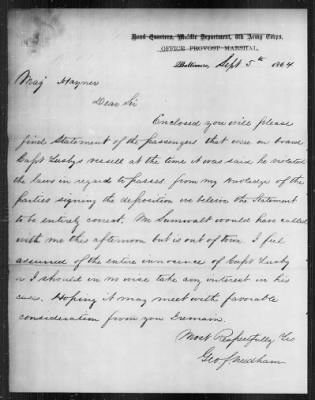 Head-Quarters, Middle Department, 8th Army Corps,
OFFICE PROVOST MARSHAL,
Baltimore, Sept 5th 1864
Maj Hayner
Dear Sir
Enclosed you will please
find Statement of the passengers that were on board
Capt Lusbys vessell at the time it was said he violated
the laws in regard to passes, from my knowledge of the
parties signing the deposition we believe the Statement
to be entirely correct. Mr Sumwalt would have called
with me this afternoon but is out of town. I feel
assured of the entire innocence of Capt Lusby
or I should in no wise take any interest in his
case. Hoping it may meet with favorable
consideration from you I remain,
Most Respectfully Yrs
Geo Needham